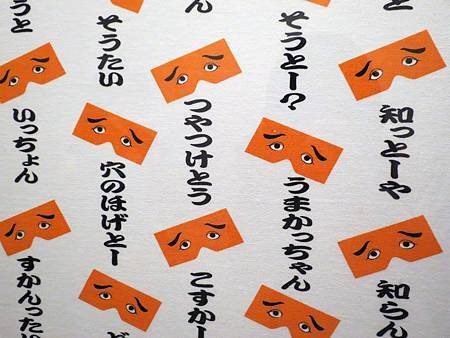 知っとーや
知らん
そうとー?
うまかっちゃん
らん
つやつけとう
こすかー
そうたい
穴のほげとー
ど
うと
いっちょん
すかんったい